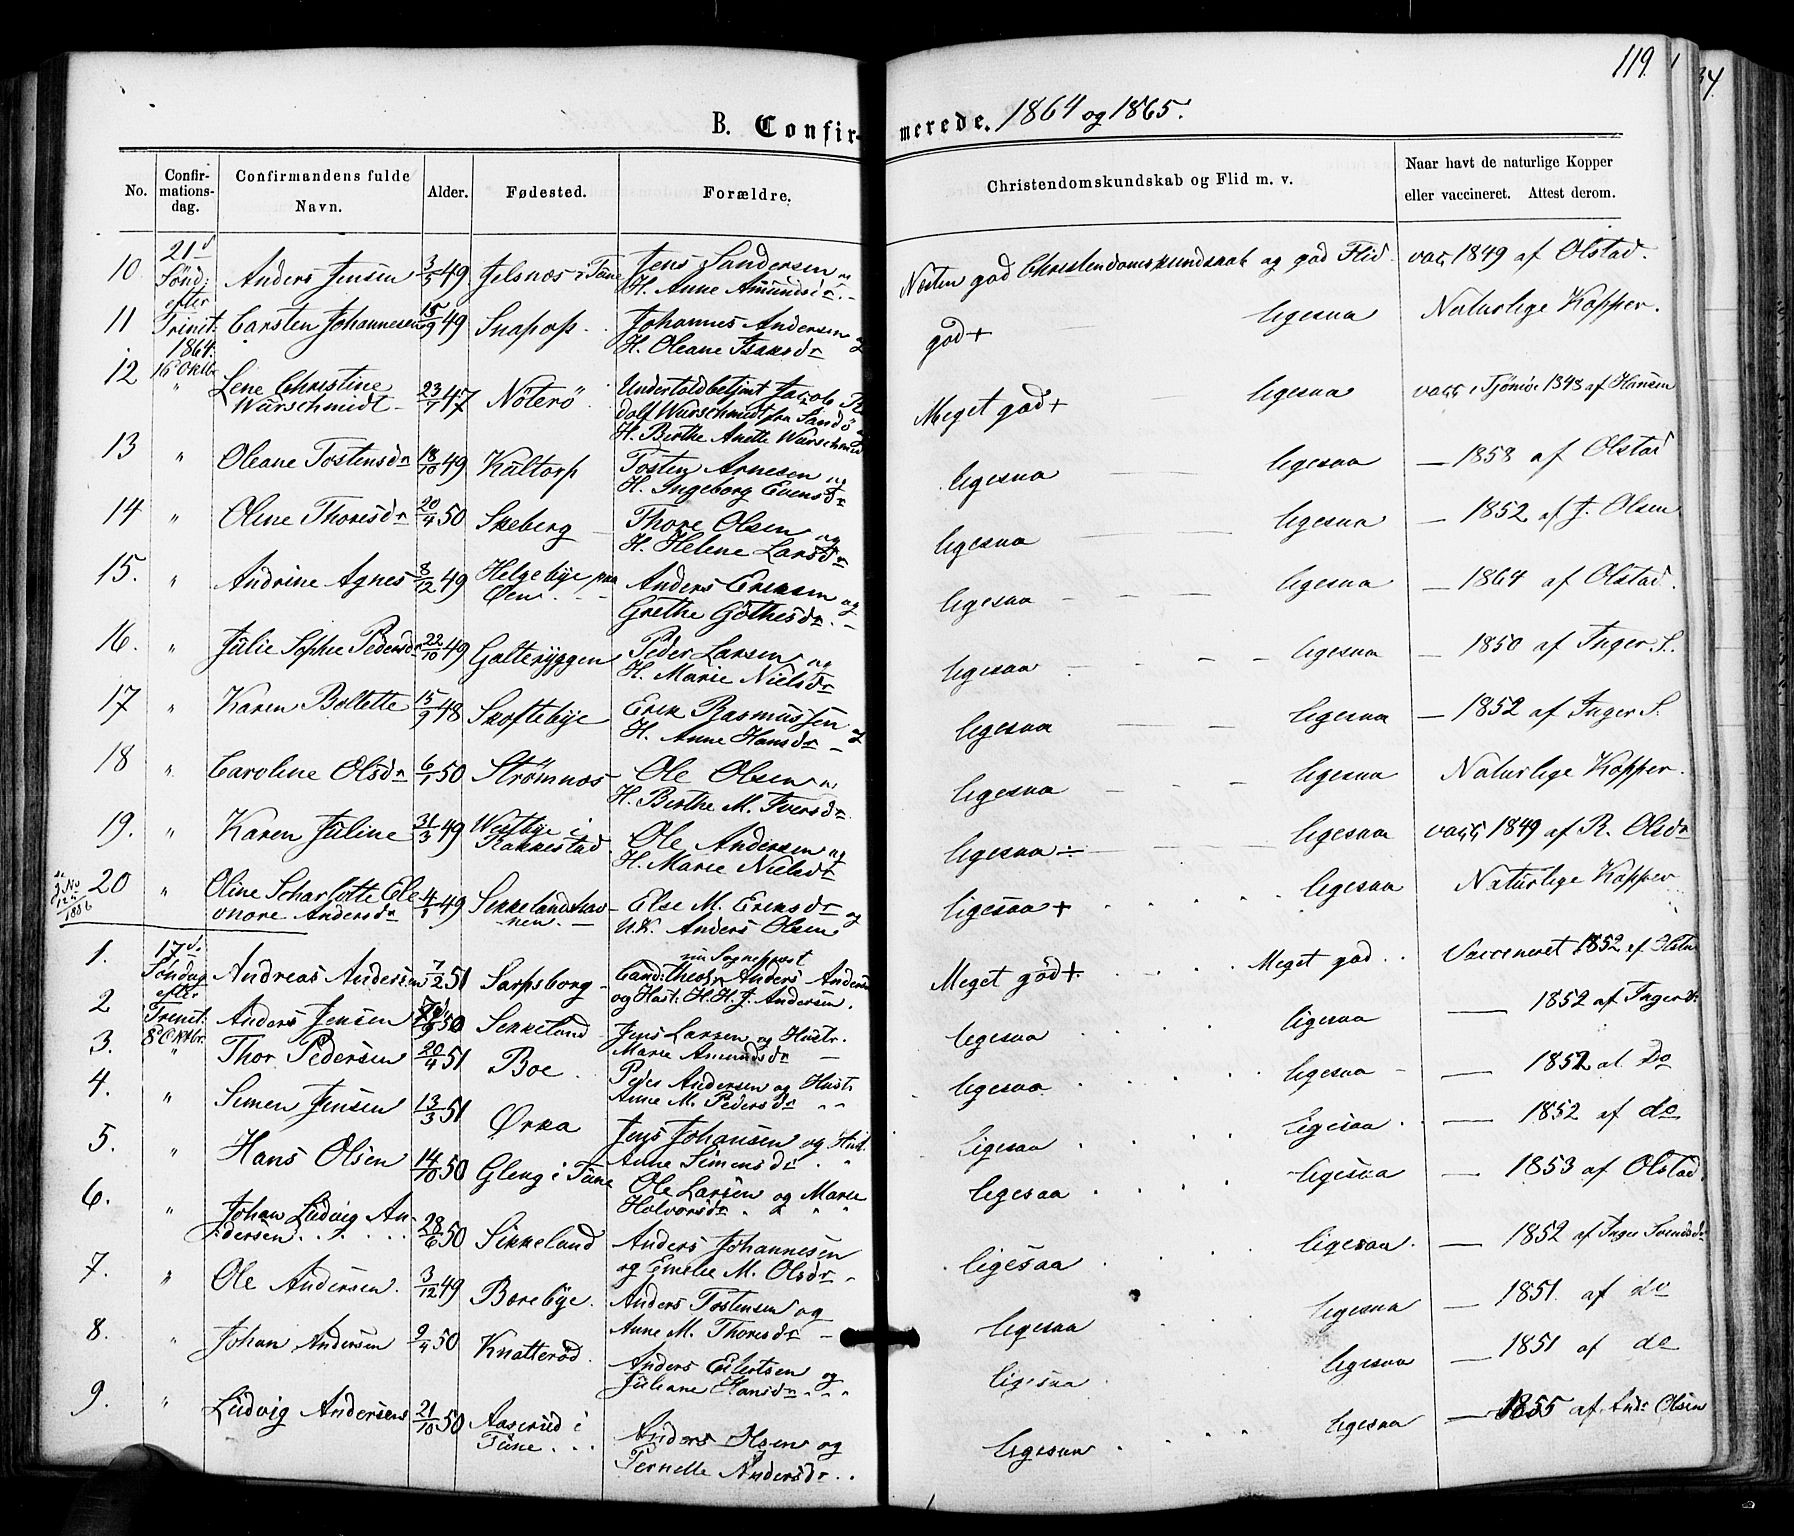 119.
34.
B. Confirmerede. 1864 og 1865.
No. Confirmationsdag. Confirmandens fulde Navn. Alder. Fødested. Forældre. Christendomskundskab og Flid m. v. Naar havt de naturlige Kopper eller vaccineret. Attest derom.
21d Sönd: efter Trinit. 1864. 16 Oktb
10 Anders Jensen 3/5 49 Jelsnæs i Tune Jens Sandersen og H. Anne Amundsdr Næsten god Christendomskundskab og god Flid. vacc 1849 af Olstad.
11 Carsten Johannesen 15/9 49 Snapop Johannes Andersen og H. Oleane Isaksdr god+ ligesaa Naturlige Kopper.
12 " Lene Christine Würschmidt 23/7 47 Nöterö Undertoldbetjent Jacob Rudolf Würschmidt fra Sandö og H. Birthe Anette Würschmidt Meget god+ ligesaa vacc i Tjömöe 1848 af Hansen
13 " Oleane Tostensdr 18/10 49 Kultorp Tosten Arnesen og H. Ingeborg Evensdr ligesaa ligesaa — 1858 af Olstad
14 " Oline Thoresdr 20/4 50 Skeberg Thore Olsen og H. Helene Larsdr ligesaa ligesaa — 1852 af J. Olsen
15. " Andrine Agnes 8/12 49 Helgebye paa Øen Anders Eriksen og Grethe Göthesdr ligesaa ligesaa — 1864 af Olstad.
16. " Julie Sophie Pedersdr 22/10 49 Galteryggen Peder Larsen og H. Marie Nielsdr ligesaa ligesaa — 1850 af Inger S.
17 " Karen Boltette 15/9 48 Skoftebye Erik Rasmussen og H. Anne Hansdr ligesaa ligesaa — 1852 af Inger S.
18 " Caroline Olsdr 6/1 50 Strömnæs Ole Olsen og H. Birthe M. Iversdr ligesaa ligesaa Naturlige Kopper.
19. " Karen Juline 31/3 49 Westbye i Rakkestad Ole Andersen og H. Marie Nielsdr ligesaa ÷ ligesaa vacc 1849 af R. Olsdr
20 " Oline Scharlotte Eleonore Andersdr 4/1 49 Sekkelandshavnen Else M. Eriksdr og U.K. Anders Olsen ligesaa + ligesaa Naturlige Kopper
1886
1. 17de Søndag efter Trinit. 8d Oktbr. Andreas Andersen 7/2 51 Sarpsborg nu Sognepræst Cand: theol: Anders Andersen og Hust. H. H. J. Andersen. Meget god+ Meget god Vaccineret 1852 af
2 Anders Jensen 50 Sekkeland Jens Larsen og Hustr. Marie Amundsdr ligesaa ligesaa — 1852 af Ingerdr
3. " Thor Pedersen 20/4 51 Boe Peder Andersen og Hust. Anne M. Pedersdr ligesaa ligesaa — 1852 af Do
4. " Simen Jensen 13/3 51 Ørka Jens Johansen og Hust. Anne Simensdr ligesaa ligesaa — 1852 af do
5. " Hans Olsen 14/10 50 Gleng i Tune Ole Larsen og Marie Halvorsdr ligesaa ligesaa — 1853 af Olstad.
6. " Johan Ludvig Andersen 28/6 50 Sikkeland Anders Johannesen og Emelie M. Olsdr ligesaa ligesaa — 1852 af Inger Svendsdr
7. " Ole Andersen 3/12 49 Borebye Anders Tostensen og Anne M. Thoresdr ligesaa ligesaa — 1851 af do
8. " Johan Andersen 9/4 50 Knatteröd Anders Eilertsen og Juliane Hansdr ligesaa ligesaa — 1851 af do
9. " Ludvig Andersen 21/10 50 Aaserud i Tune Anders Olsen og Pernelle Andersdr ligesaa ligesaa — 1855 af Andr Olsen